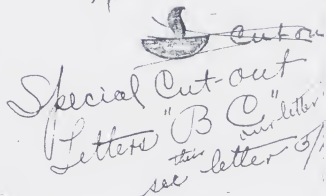 Cut out
Special Cut-out
Letters "B C"
their our letter
see letter 5/